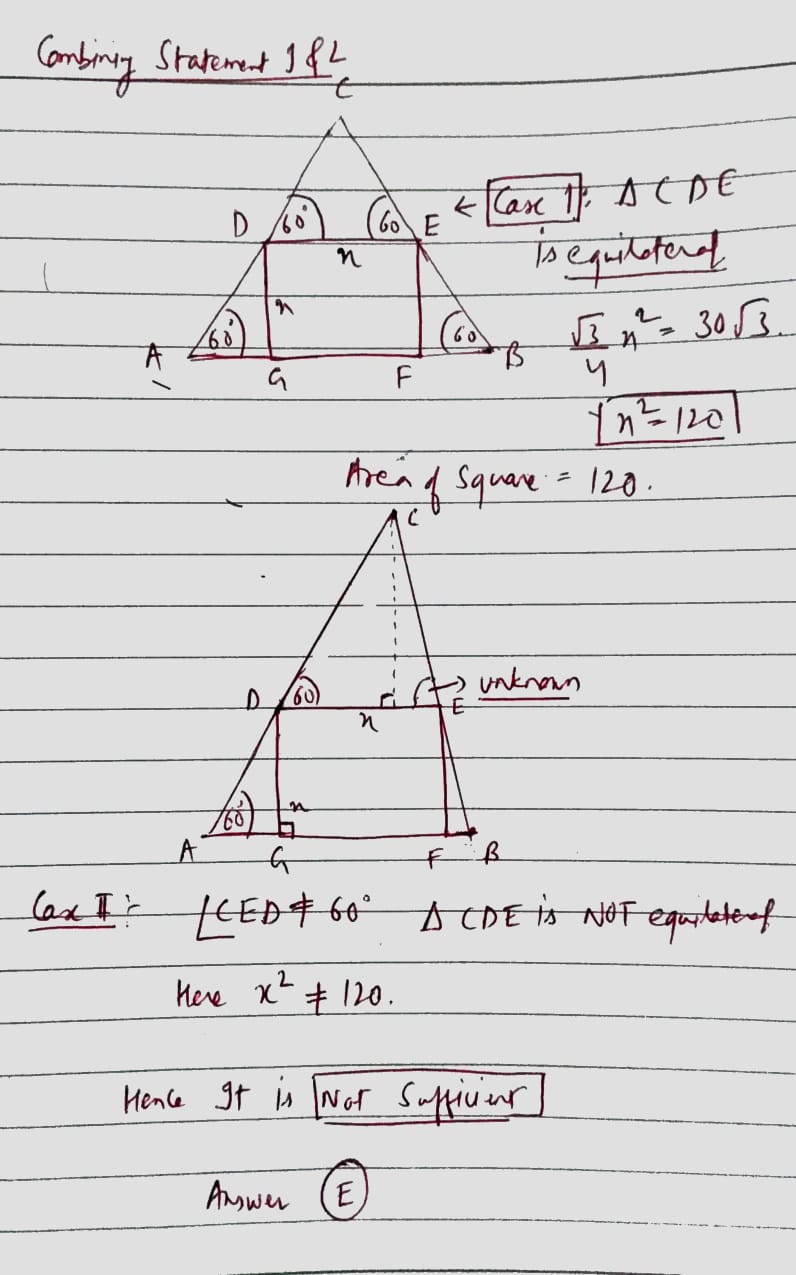 Combining Statement 1 & 2
C
D 60° 60 E ← Case 1: Δ CDE
is equilateral
x
x
A 60° 60 B
G F
√3/4 x² = 30√3.
x² = 120
Area of Square = 120.
C
D 60 → unknown
E
x
x
60°
A G F B
Case II :- ∠CED ≠ 60° Δ CDE is NOT equilateral
Here x² ≠ 120.
Hence It is Not Sufficient
Answer E